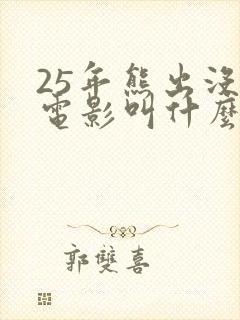 25年熊出沒
電影叫什麼
郭雙喜